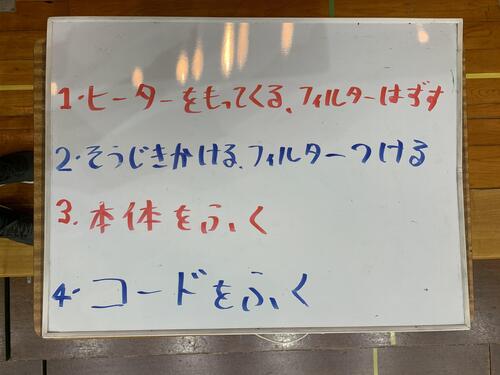 1. ヒーターをもってくる、フィルターはずす
2. そうじきかける、フィルターつける
3. 本体をふく
4. コードをふく